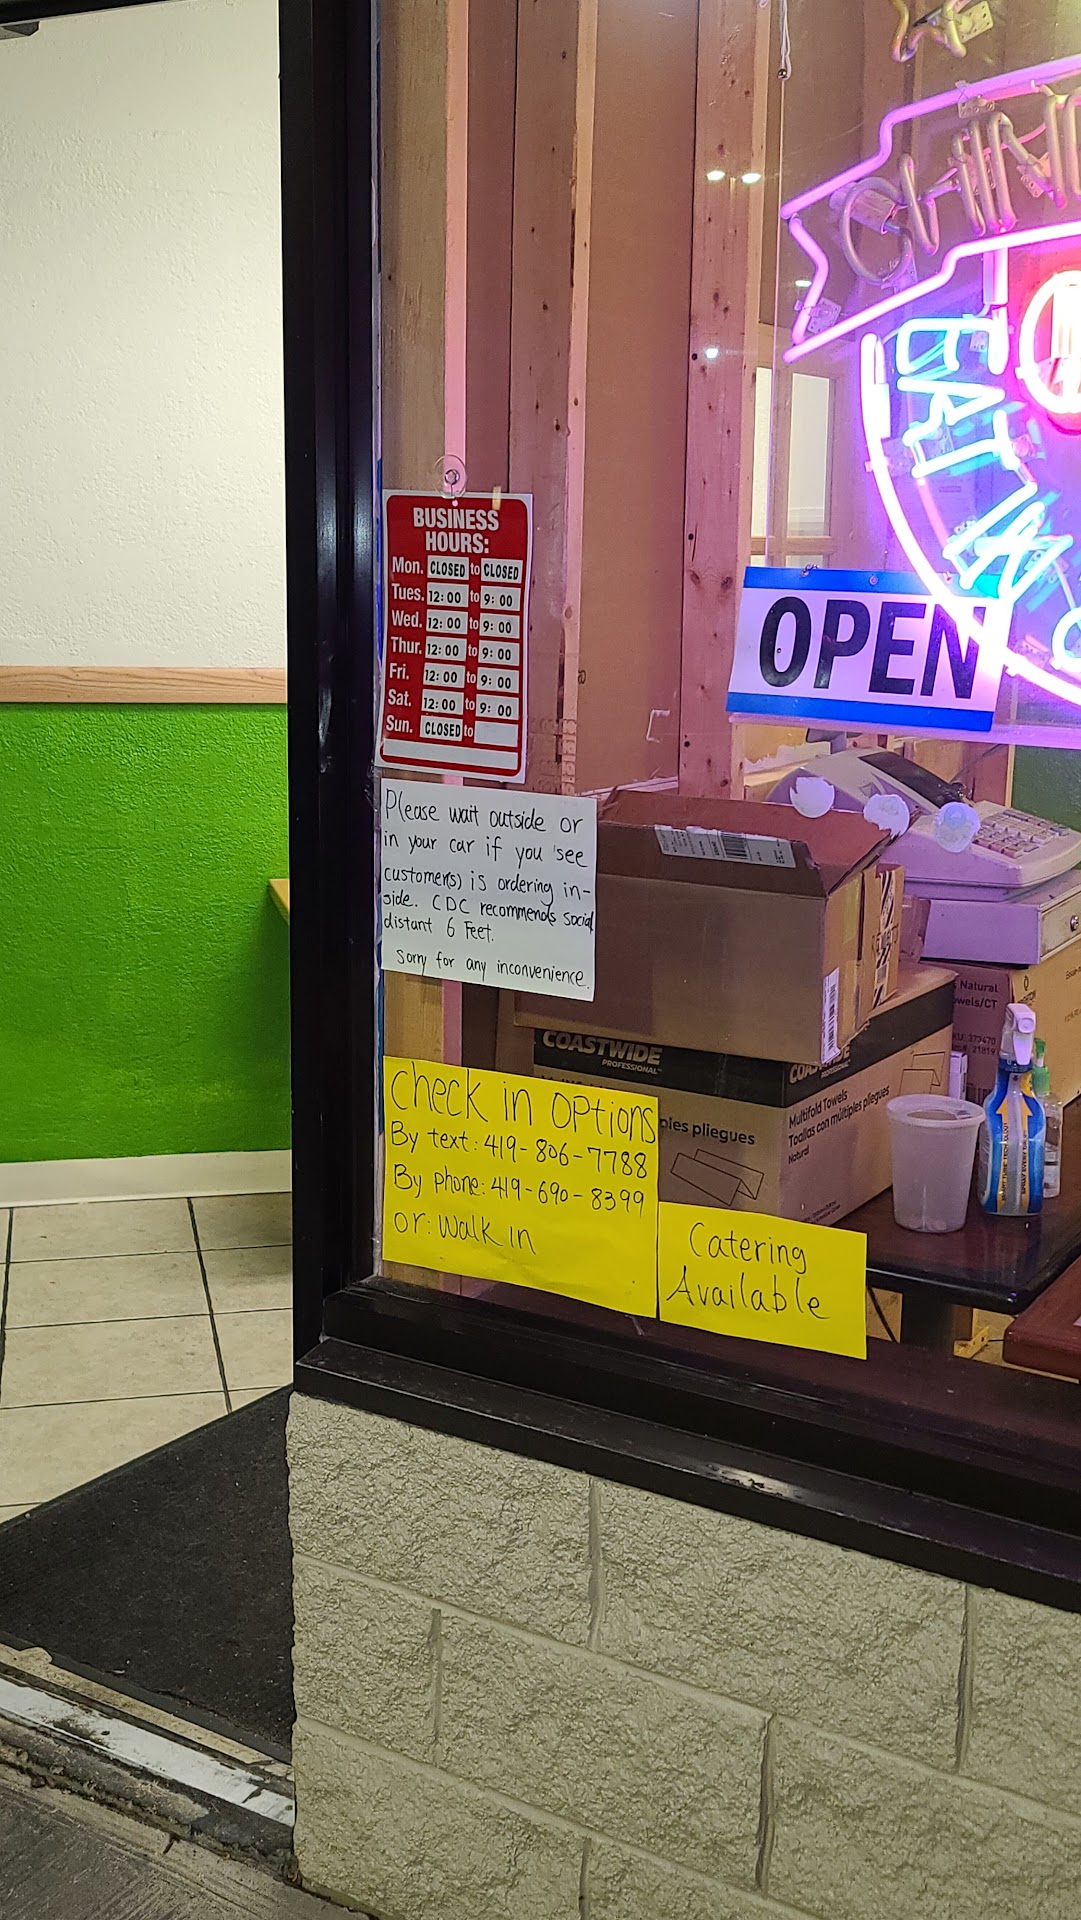 EAT IN
OPEN
BUSINESS
HOURS:
Mon. CLOSED to CLOSED
Tues. 12:00 to 9:00
Wed. 12:00 to 9:00
Thur. 12:00 to 9:00
Fri. 12:00 to 9:00
Sat. 12:00 to 9:00
Sun. CLOSED to
Please wait outside or
in your car if you see
customer(s) is ordering in-
side. CDC recommends social
distant 6 Feet.
Sorry for any inconvenience.
Check in options
By text: 419-806-7788
By phone: 419-690-8399
or: walk in
Catering
Available
COASTWIDE
PROFESSIONAL
ples pliegues
COA
DE
PROFESSIONAL
Multifold Towels
Toallas con múltiples pliegues
Natural
Natural
owels/CT